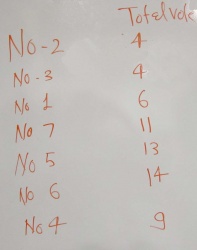 Total vote
No-2 4
No-3 4
No 1 6
No 7 11
No 5 13
No 6 14
No 4 9